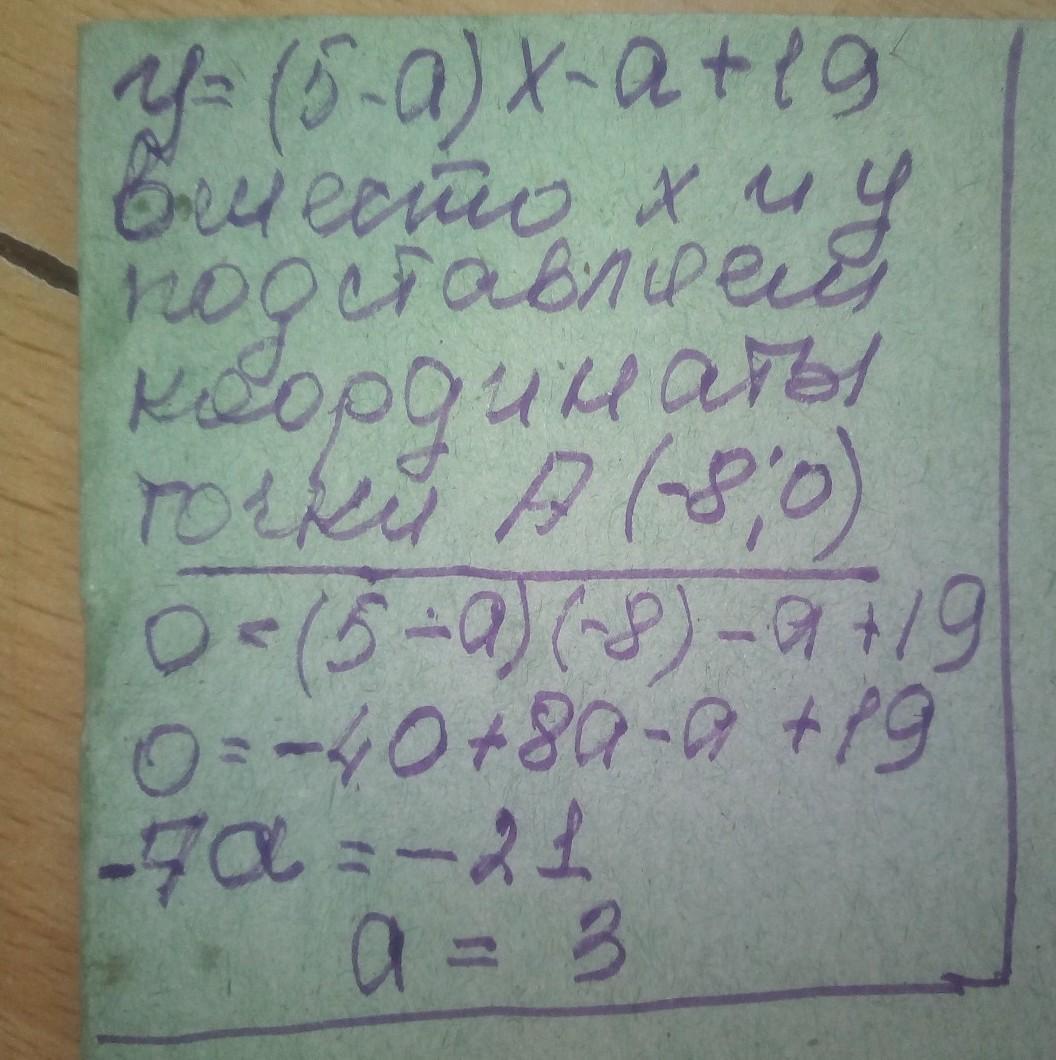 y=(5-a)x-a+19
вместо x и y
подставляем
координаты
точки A (-8;0)
0=(5-a)(-8)-a+19
0=-40+8a-a+19
-7a=-21
a = 3